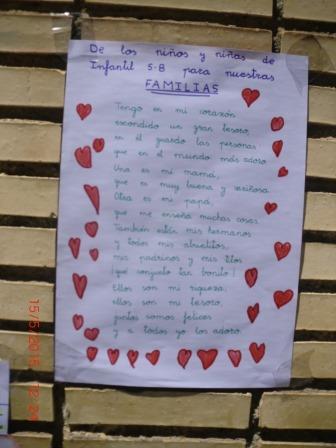 De los niños y niñas de
Infantil 5-B para nuestras
FAMILIAS
Tengo en mi corazón
escondido un gran tesoro,
en él guardo las personas
que en el mundo más adoro.
Una es mi mamá,
que es muy buena y cariñosa.
Otra es mi papá,
que me enseña muchas cosas.
También están mis hermanos
y todos mis abuelitos,
mis padrinos y mis titos
¡qué conjunto tan bonito!
Ellos son mi riqueza,
ellos son mi tesoro,
juntos somos felices
y a todos yo los adoro.
15/5/2015 12:24